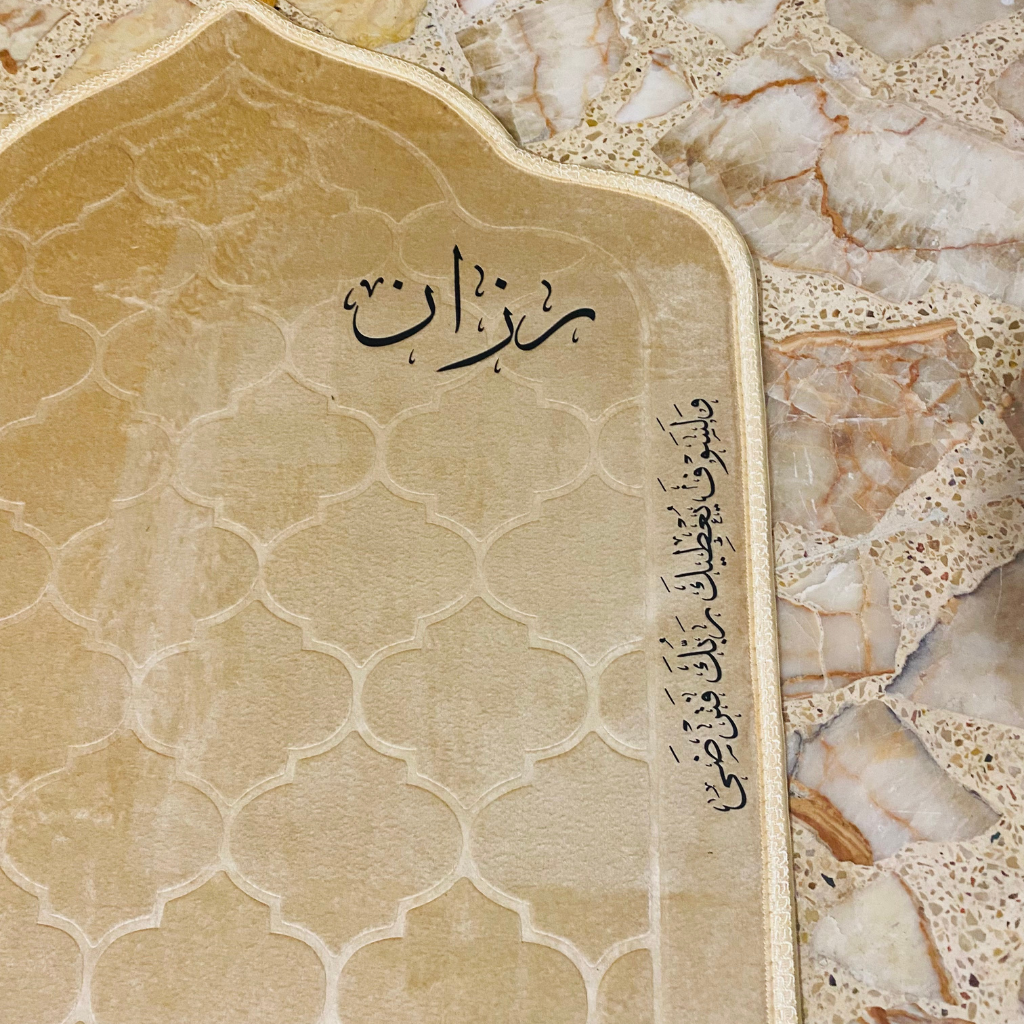 رزان
وَلَسَوْفَ يُعْطِيكَ رَبُّكَ فَتَرْضَىٰ